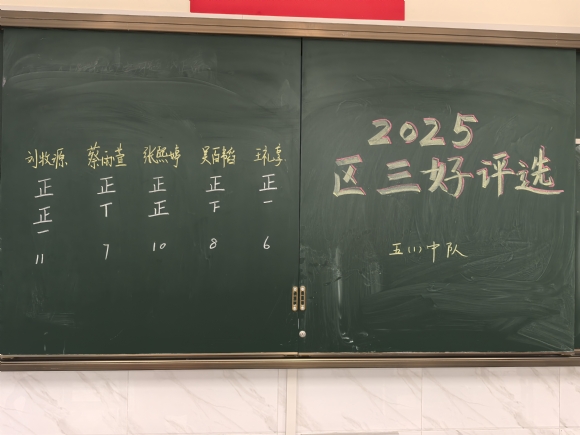 刘牧源 蔡雨萱 张熙婷 吴百韬 王礼享
正 正 正 正 正
正 丅 正 下 一
一
11 7 10 8 6
2025
区三好评选
五(1)中队